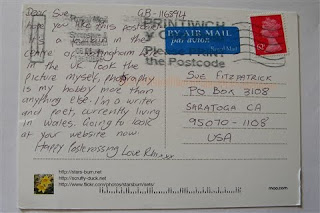 Dear Sue,
GB-116894
hope you like this postcard
It's a fountain in the
centre of Birmingham
in the UK. I took the
picture myself, photography
is my hobby more than
anything else. I'm a writer
and poet, currently living
in Wales. Going to look
at your website now.
Happy Postcrossing Love
PRINT
the Postcode
BY AIR MAIL
par avion
Royal Mail
SUE FITZPATRICK
PO BOX 3108
SARATOGA CA
95070-1108
USA
http://stars-burn.net
http://scruffy-duck.net
http://www.flickr.com/photos/starsburn/sets/
moo.com